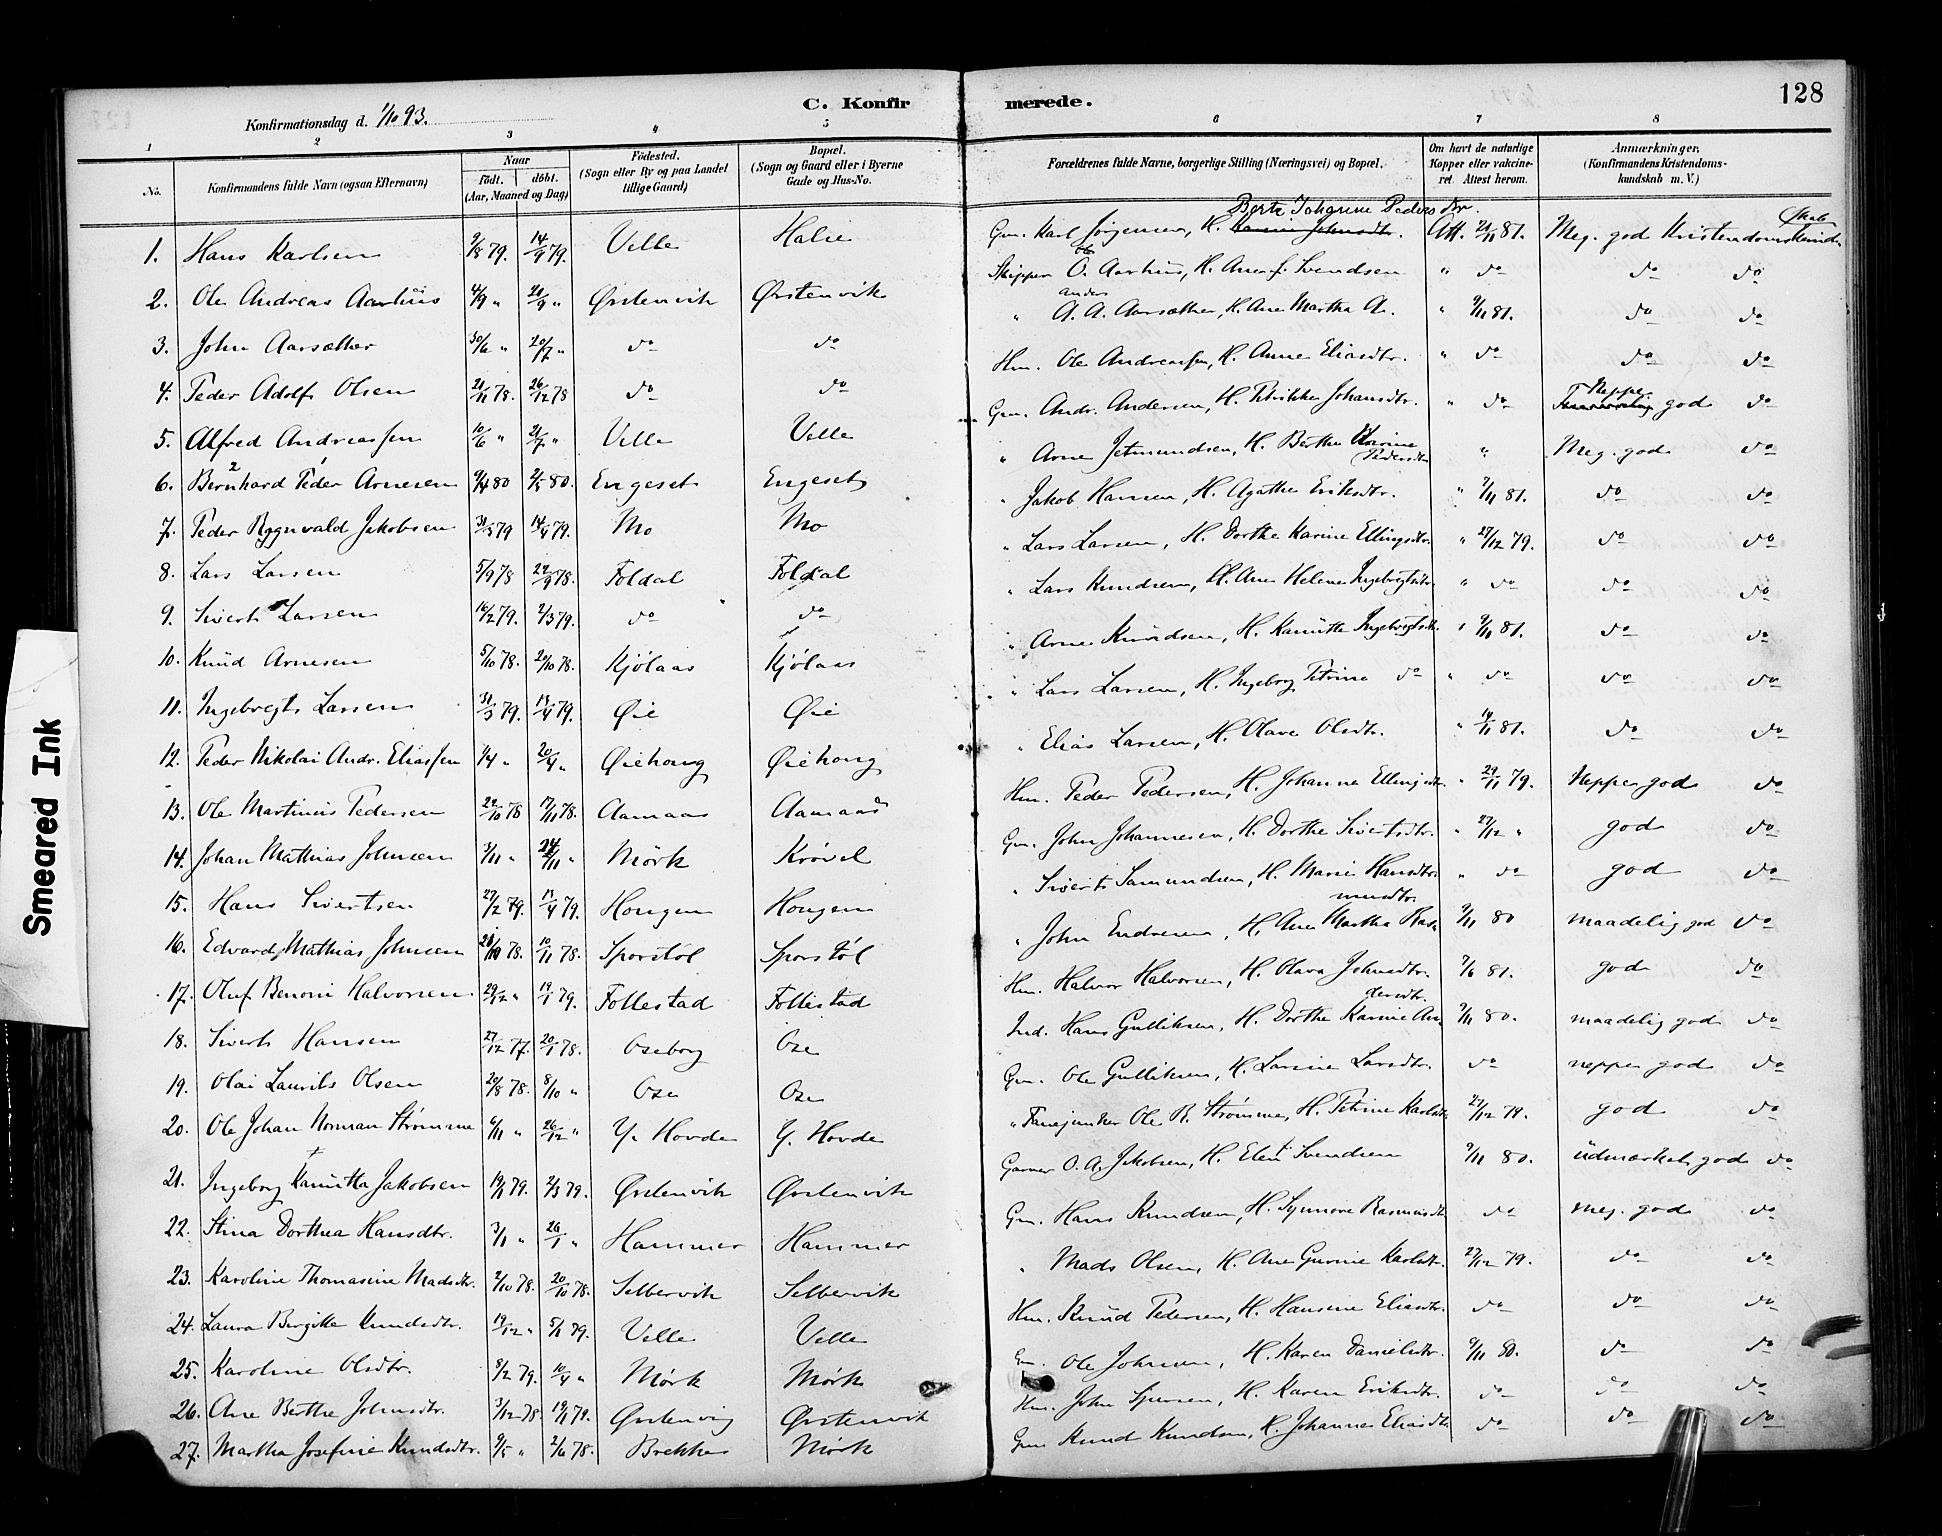 128
C. Konfirmerede.
Konfirmationsdag d. 1/10 93.
1 2 3 4 5 6 7 8
No. Konfirmandens fulde Navn (ogsaa Efternavn) Naar Födt. döbt. (Aar, Maaned og Dag) Födested. (Sogn eller By og paa Landet tillige Gaard) Bopæl. (Sogn og Gaard eller i Byerne Gade og Hus-No. Forældrenes fulde Navne, borgerlige Stilling (Næringsvei) og Bopæl. Om havt de naturlige Kopper eller vakcineret. Attest herom. Anmærkninger, (Konfirmandens Kristendomskundskab m. V.)
Berte Johanne Pedersdtr.
1. Hans Karlsen 9/8 79. 14/9 79. Velle Halse Gm. Karl Jörgensen, H. Karen Johnsdtr. Att. 81. Meg. god Kristendomskundskab
2. Ole Andreas Aarhus 4/9 " 20/9 " Ørstenvik Ørstenvik Skipper O. Aarhus, H. Ane J. Svendsen " do do do
3. John Aarsæther 30/6 " 20/7 " do do " A. A. Aarsæther, H. Ane Martha A. " 9/11 81. do do
4. Peder Adolf Olsen 21/11 78. 26/12 78 do do Hm. Ole Andreassen, H. Anne Eliasdtr. " do do do
5. Alfred Andreassen 10/6 " 21/7 " Velle Velle Gm. Andr. Andersen, H. Petrikke Johansdtr. " do Neppe god do
6. Bernhard Peder Arnesen 9/4 80 2/5 80. Engeset Engeset " Arne Jetmundsen, H. Berthe Karine Pedersdtr " Meg. god do
7. Peder Rognvald Jakobsen 31/3 79 14/4 79. Mo Mo " Jakob Hansen, H. Agathe Eriksdtr. " 9/11 81. do do
8. Lars Larsen 5/9 78 22/9 78. Foldal Foldal " Lars Larsen, H. Dorthe Karine Ellingsdtr. " 27/12 79. do do
9. Sivert Larsen 16/2 79. 2/3 79. do do " Lars Knudsen, H. Ane Helene Ingebregtsdtr " do do do
10. Knud Arnesen 5/10 78. 20/10 78. Kjölaas Kjölaas " Arne Knudsen, H. Kanutte Ingebregtsdtr. " 9/11 81. do do
11. Ingebregt Larsen 31/3 79. 13/4 79. Øie Øie " Lars Larsen, H. Ingeborg Petrine do " do do do
12. Peder Nikolai Andr. Eliassen 1/4 " 20/4 " Øiehoug Øiehoug " Elias Larsen, H. Olave Olsdtr. " 81. do do
13. Ole Martinus Pedersen 22/10 78 17/11 78. Aamaas Aamaas Hm. Peder Pedersen, H. Johanne Ellingsdtr " 29/11 79. Neppe god do
14. Johan Mathias Johnsen 3/11 " 24/11 " Mörk Krövel Gm. John Johannesen, H. Dorthe Sivertsdtr. " 27/12 " god do
15. Hans Sivertsen 27/2 79. 13/4 79. Hougen Hougen " Sivert Samundsen, H. Marie Hansdtr. " do god do
16. Edvard Mathias Johnsen 78. 10/11 78. Sporstöl Sporstöl " John Endresen, H. Ane Martha Rasmusdtr. 9/11 80 maadelig god do
17. Oluf Benoni Halvorsen 29/12 " 19/1 79. Follestad Follestad Hm. Halvor Halvorsen, H. Olava Johnsdtr. 7/6 81. god do
18. Sivert Hansen 27/12 77. 20/1 78. Oseborg Ose Ind. Hans Gulliksen, H. Dorthe Karine Andersdtr. 9/11 80. maadelig god do
19. Olai Laurits Olsen 20/8 78. 8/10 " Ose Ose Gm. Ole Gulliksen, H. Larine Larsdtr. do neppe god do
20. Ole Johan Norman Strömme 6/11 " 26/12 " Y. Hovde Y. Hovde " Fanejunker Ole R. Strömme, H. Petrine Karlsdtr 27/12 79. god do
21. Ingeborg Kanutta Jakobsen 19/1 79. 2/3 79. Ørstenvik Ørstenvik Garver O. A. Jakobsen, H. Elen Svendsen 9/11 80. udmærket god do
22. Stina Dorthea Hansdtr. 3/1 " 26/1 " Hammer Hammer Gm. Hans Knudsen, H. Synnøve Rasmusdtr do meg. god do
23. Karoline Thomasine Madsdtr. 2/10 78. 20/10 78. Selbervik Selbervik " Mads Olsen, H. Ane Gurine Karlsdtr. 27/12 79. do do
24. Laura Birgitte Knudsdtr. 19/12 " 5/1 79. Velle Velle Hm. Knud Pedersen, H. Hansine Eliasdtr. do do do
25. Karoline Olsdtr. 8/2 79. 10/4 " Mörk Mörk Gm. Ole Johnsen, H. Karen Danielsdtr. 9/11 80. do do
26. Ane Berthe Johnsdtr. 3/12 78. 19/1 79. Ørstenvig Ørstenvik Hm. John Sjursen, H. Karen Eriksdtr. do do do
27. Martha Josefine Knudsdtr. 9/5 " 2/6 78. Brekke Mörk Gm. Knud Knudsen, H. Johanne Eliasdtr do do do
Smeared Ink